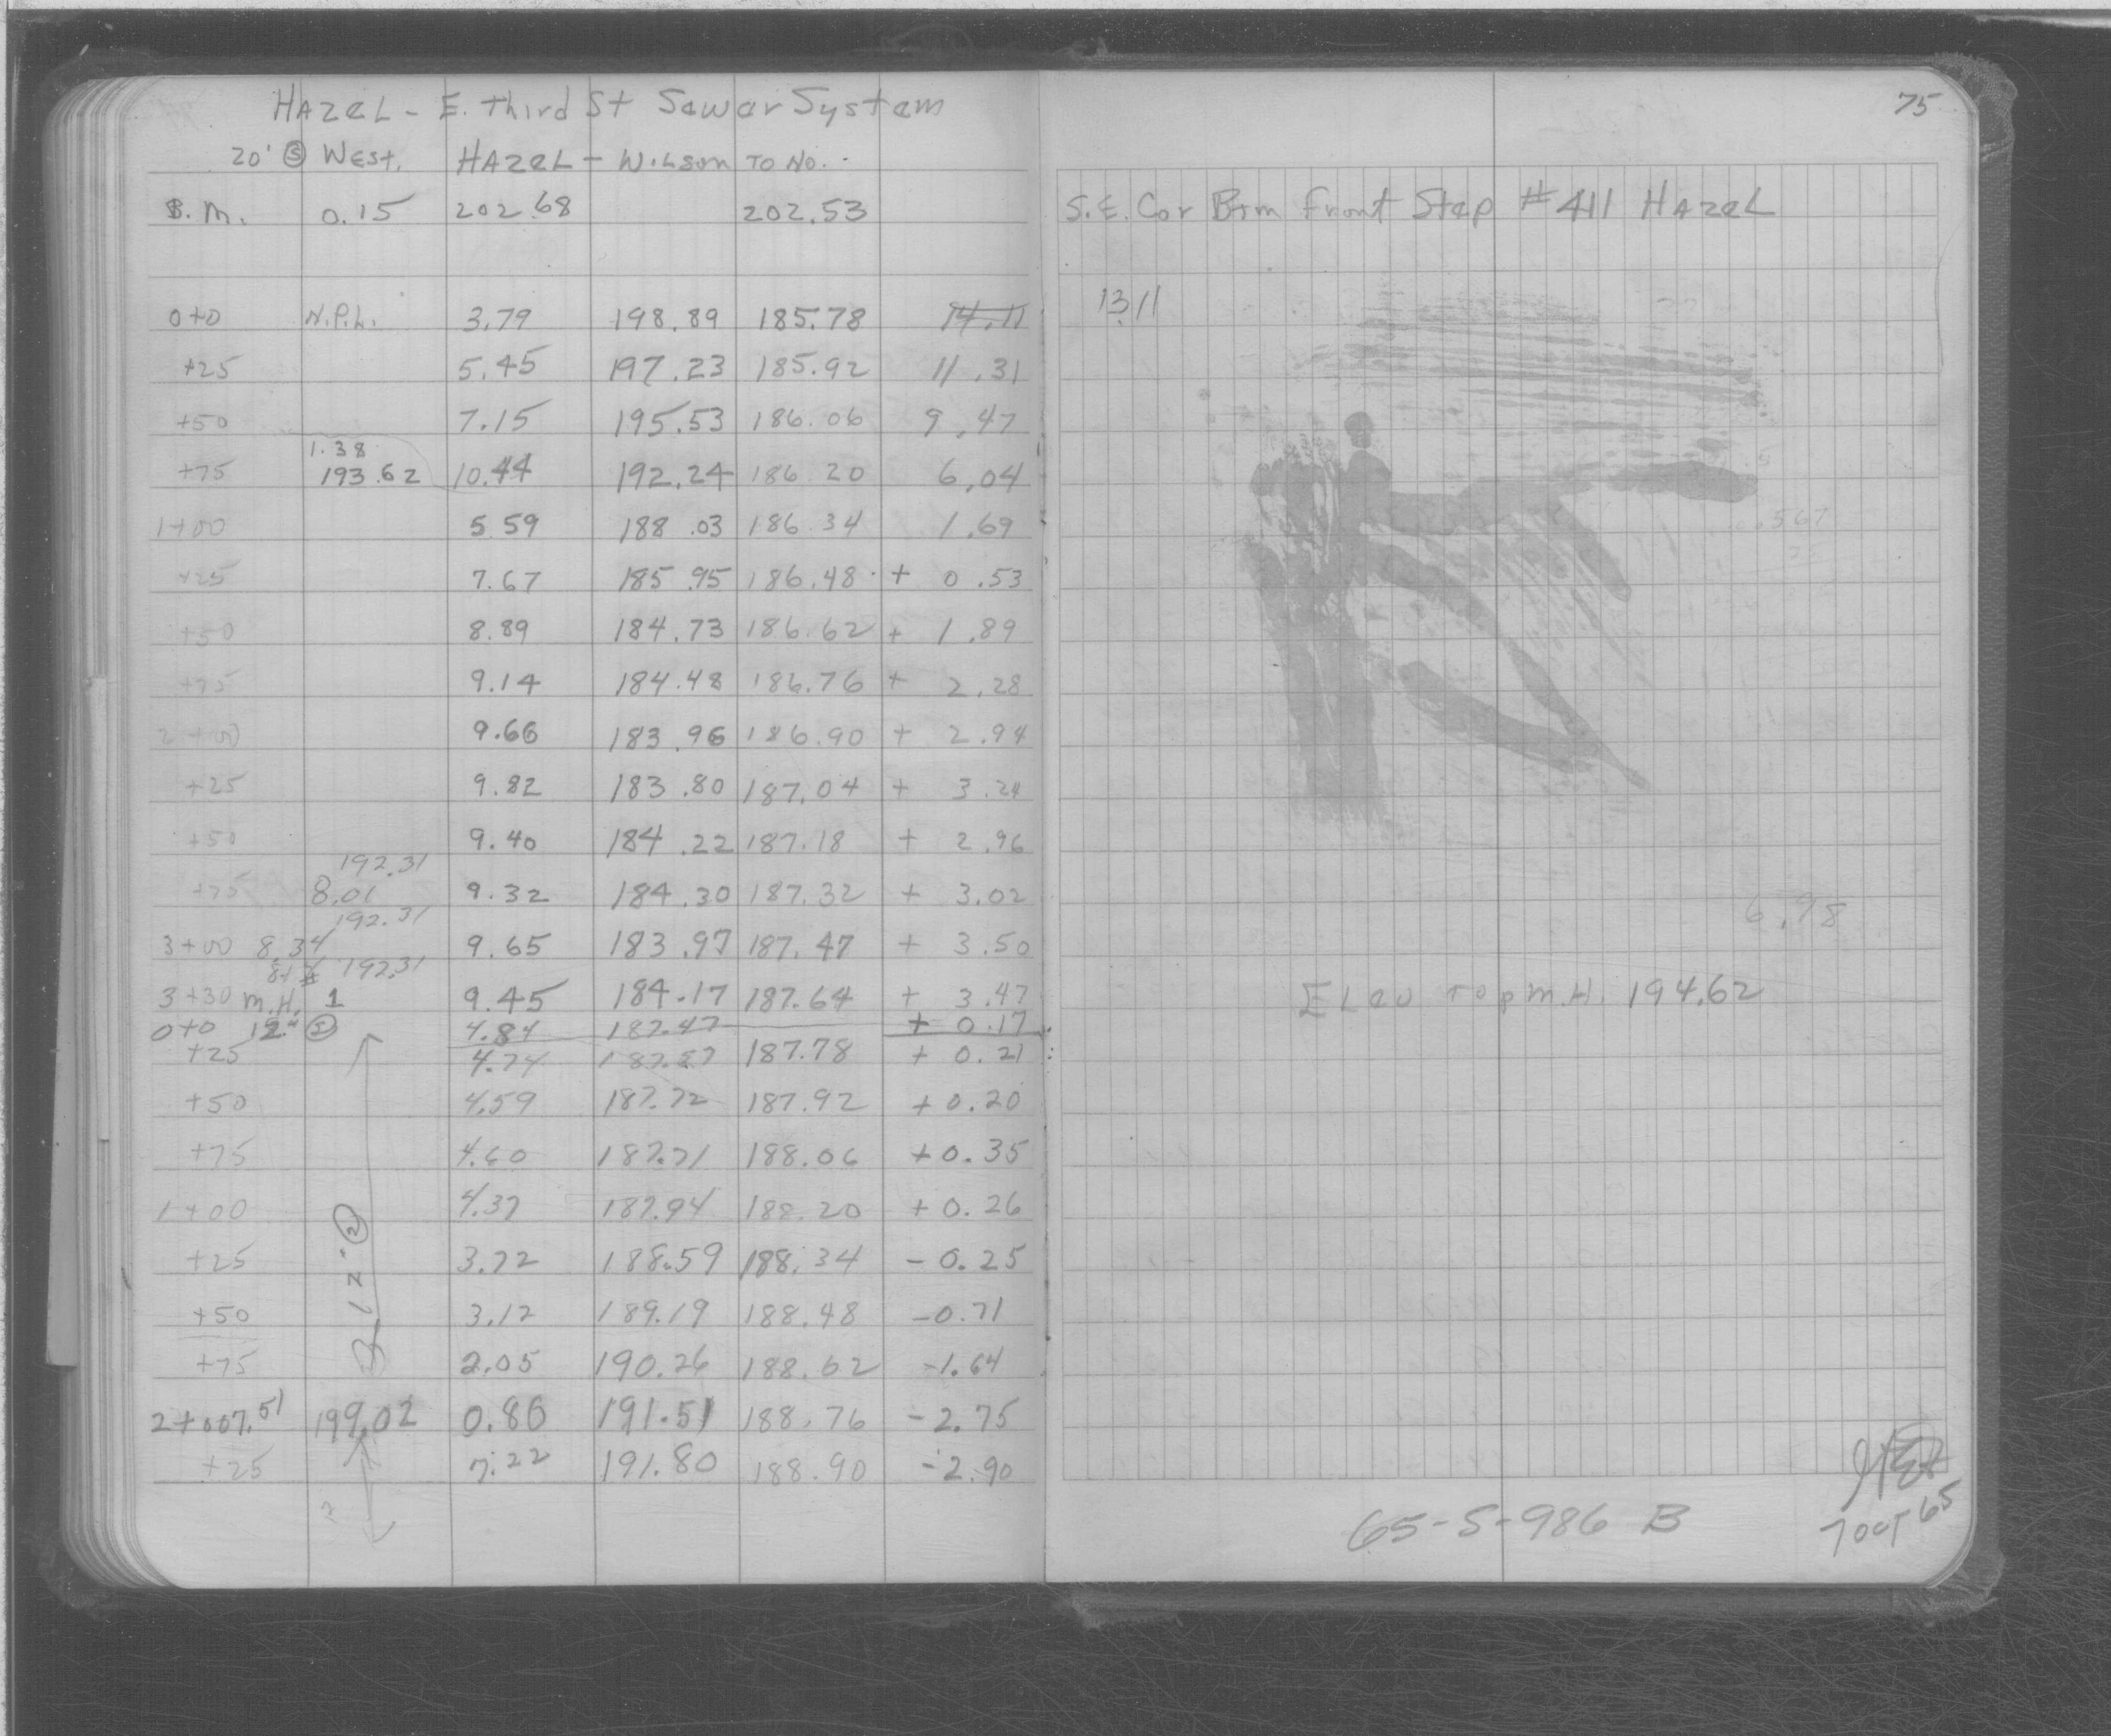 HAZEL - E. Third St Sewar System
20' Ⓢ West. HAZEL - Wilson TO No.
B.M. 0.15 202.68 202.53
0+0 N.P.L. 3.79 198.89 185.78 14.11
+25 5.45 197.23 185.92 11.31
+50 7.15 195.53 186.06 9.47
1.38
+75 193.62 10.44 192.24 186.20 6.04
1+00 5.59 188.03 186.34 1.69
+25 7.67 185.95 186.48 + 0.53
+50 8.89 184.73 186.62 + 1.89
+75 9.14 184.48 186.76 + 2.28
2+00 9.66 183.96 186.90 + 2.94
+25 9.82 183.80 187.04 + 3.24
+50 9.40 184.22 187.18 + 2.96
192.31
+75 8.01 9.32 184.30 187.32 + 3.02
192.31
3+00 8.34 9.65 183.97 187.47 + 3.50
192.31
3+30 M.H. 1 9.45 184.17 187.64 + 3.47
0+0 12" 4.84 187.47 + 0.17
+25 4.74 187.57 187.78 + 0.21
+50 4.59 187.72 187.92 + 0.20
+75 4.60 187.71 188.06 + 0.35
1+00 4.37 187.94 188.20 + 0.26
+25 3.72 188.59 188.34 - 0.25
+50 3.12 189.19 188.48 - 0.71
+75 2.05 190.26 188.62 - 1.64
2+00 7.51 199.02 0.80 191.51 188.76 - 2.75
+25 7.22 191.80 188.90 - 2.90
75
S.E. Cor Btm Front Step #411 HAZEL
13.11
6.98
Elev top M.H. 194.62
65-S-986 B
7 OCT 65